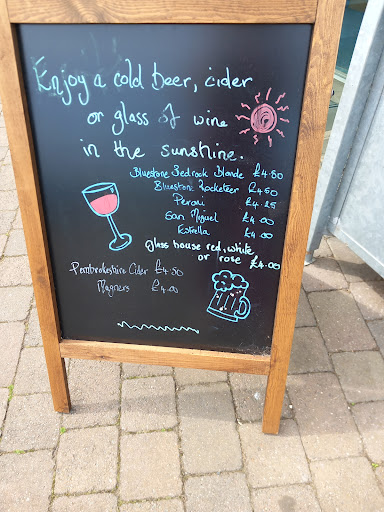 Enjoy a cold beer, cider
or glass of wine
in the sunshine.
Bluestone Bedrock Blonde £4.50
Bluestone Rocketeer £4.50
Peroni £4.25
San Miguel £4.00
Estrella £4.00
Glass house red, white
or rose £4.00
Pembrokeshire Cider £4.50
Magners £4.00